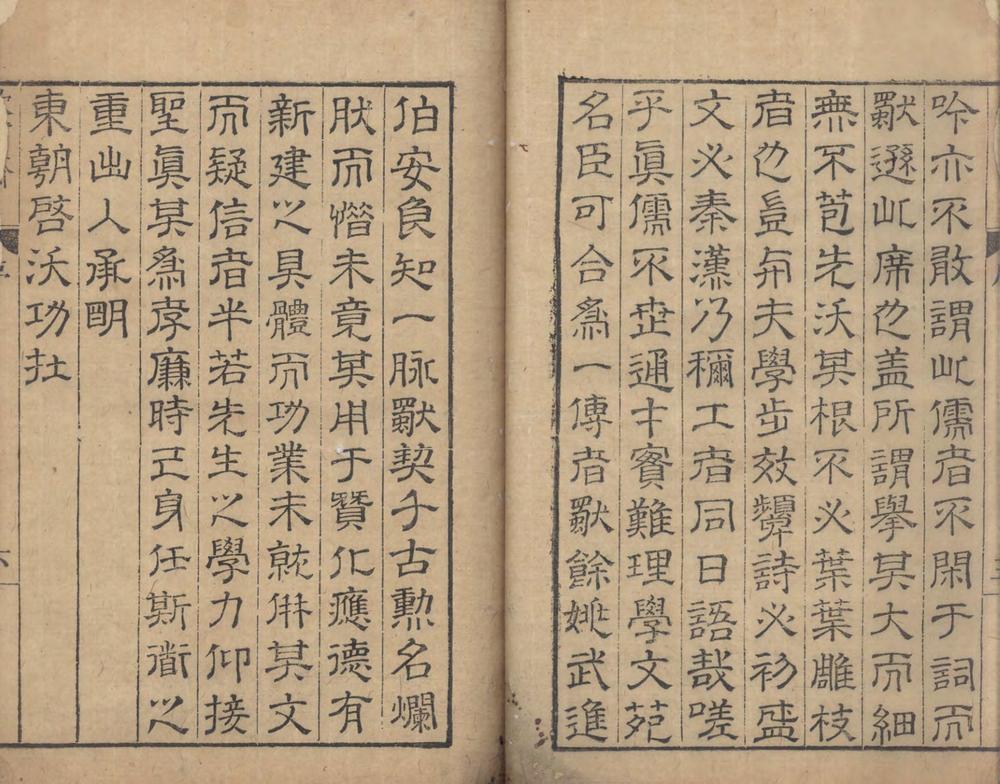 吟亦不敢謂此儒者不閑于詞而
獸遜此席也盖所謂舉其大而細
無不苞先沃其根不必葉葉雕枝
者也豈與夫學步效顰詩必初盛
文必秦漢乃稱工者同日語哉嗟
乎眞儒不世通才賓難理學文苑
名臣可合爲一傳者獸餘姚武進
伯安良知一脉獸契千古勳名爛
肰而憯未竟其用于贊化應德有
新建之具體而功業未就併其文
而疑信者半若先生之學力仰接
聖眞其爲孝廉時已身任斯道之
重出入承明
東朝啓沃功